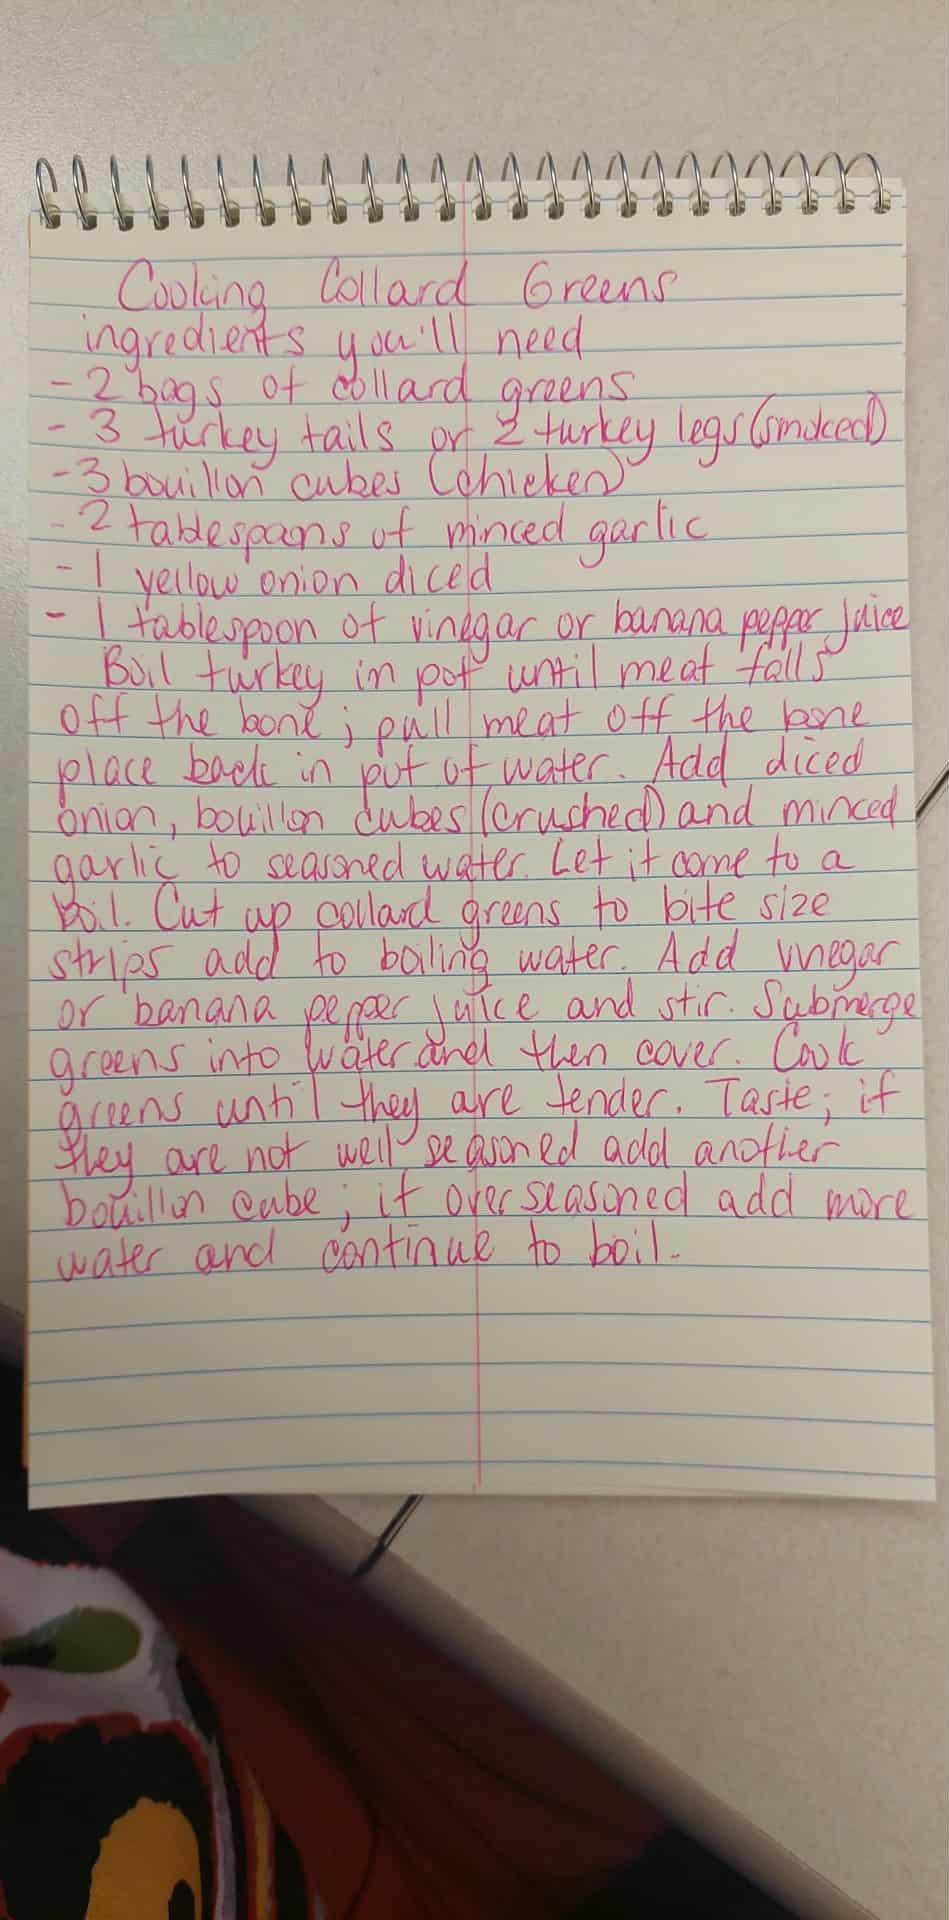 Cooking Collard Greens
ingredients you'll need
- 2 bags of collard greens
- 3 turkey tails or 2 turkey legs (smoked)
- 3 bouillon cubes (chicken)
- 2 tablespoons of minced garlic
- 1 yellow onion diced
- 1 tablespoon of vinegar or banana pepper juice
Boil turkey in pot until meat falls
off the bone; pull meat off the bone
place back in pot of water. Add diced
onion, bouillon cubes (crushed) and minced
garlic to seasoned water. Let it come to a
boil. Cut up collard greens to bite size
strips add to boiling water. Add vinegar
or banana pepper juice and stir. Submerge
greens into water and then cover. Cook
greens until they are tender. Taste; if
they are not well seasoned add another
bouillon cube; if over seasoned add more
water and continue to boil.